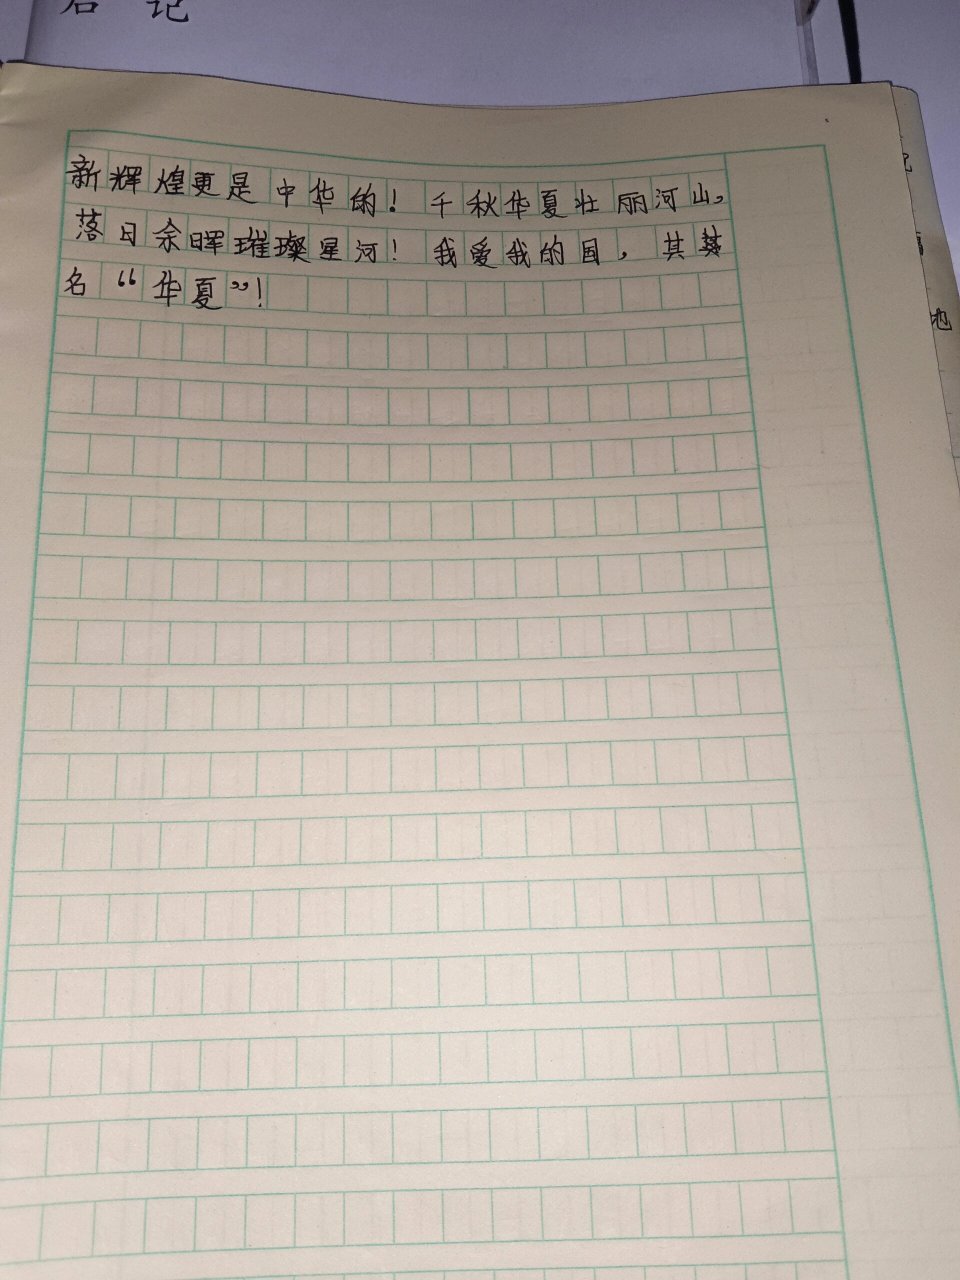 后 记
新辉煌更是中华的！千秋华夏壮丽河山，
落日余晖璀璨星河！我爱我的国，其
名“华夏”！
地